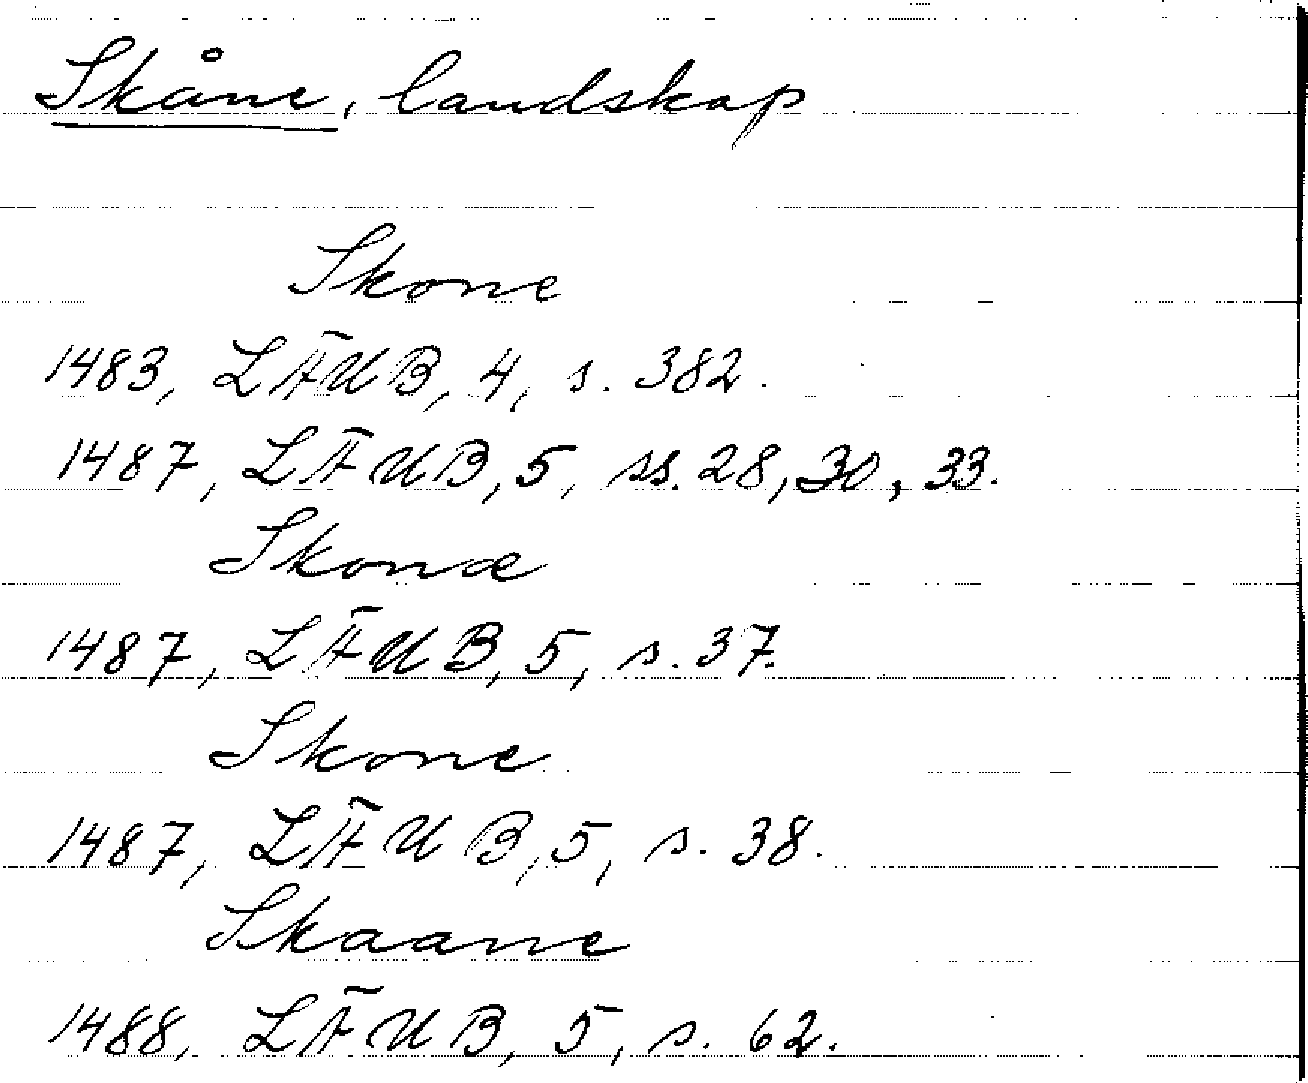 Skåne, landskap
Skone
1483, LÄUB, 4, s. 382.
1487, LÄUB, 5, ss. 28, 30, 33.
Skonæ
1487, LÄUB, 5, s. 37.
Skone
1487, LÄUB, 5, s. 38.
Skaane
1488, LÄUB, 5, s. 62.